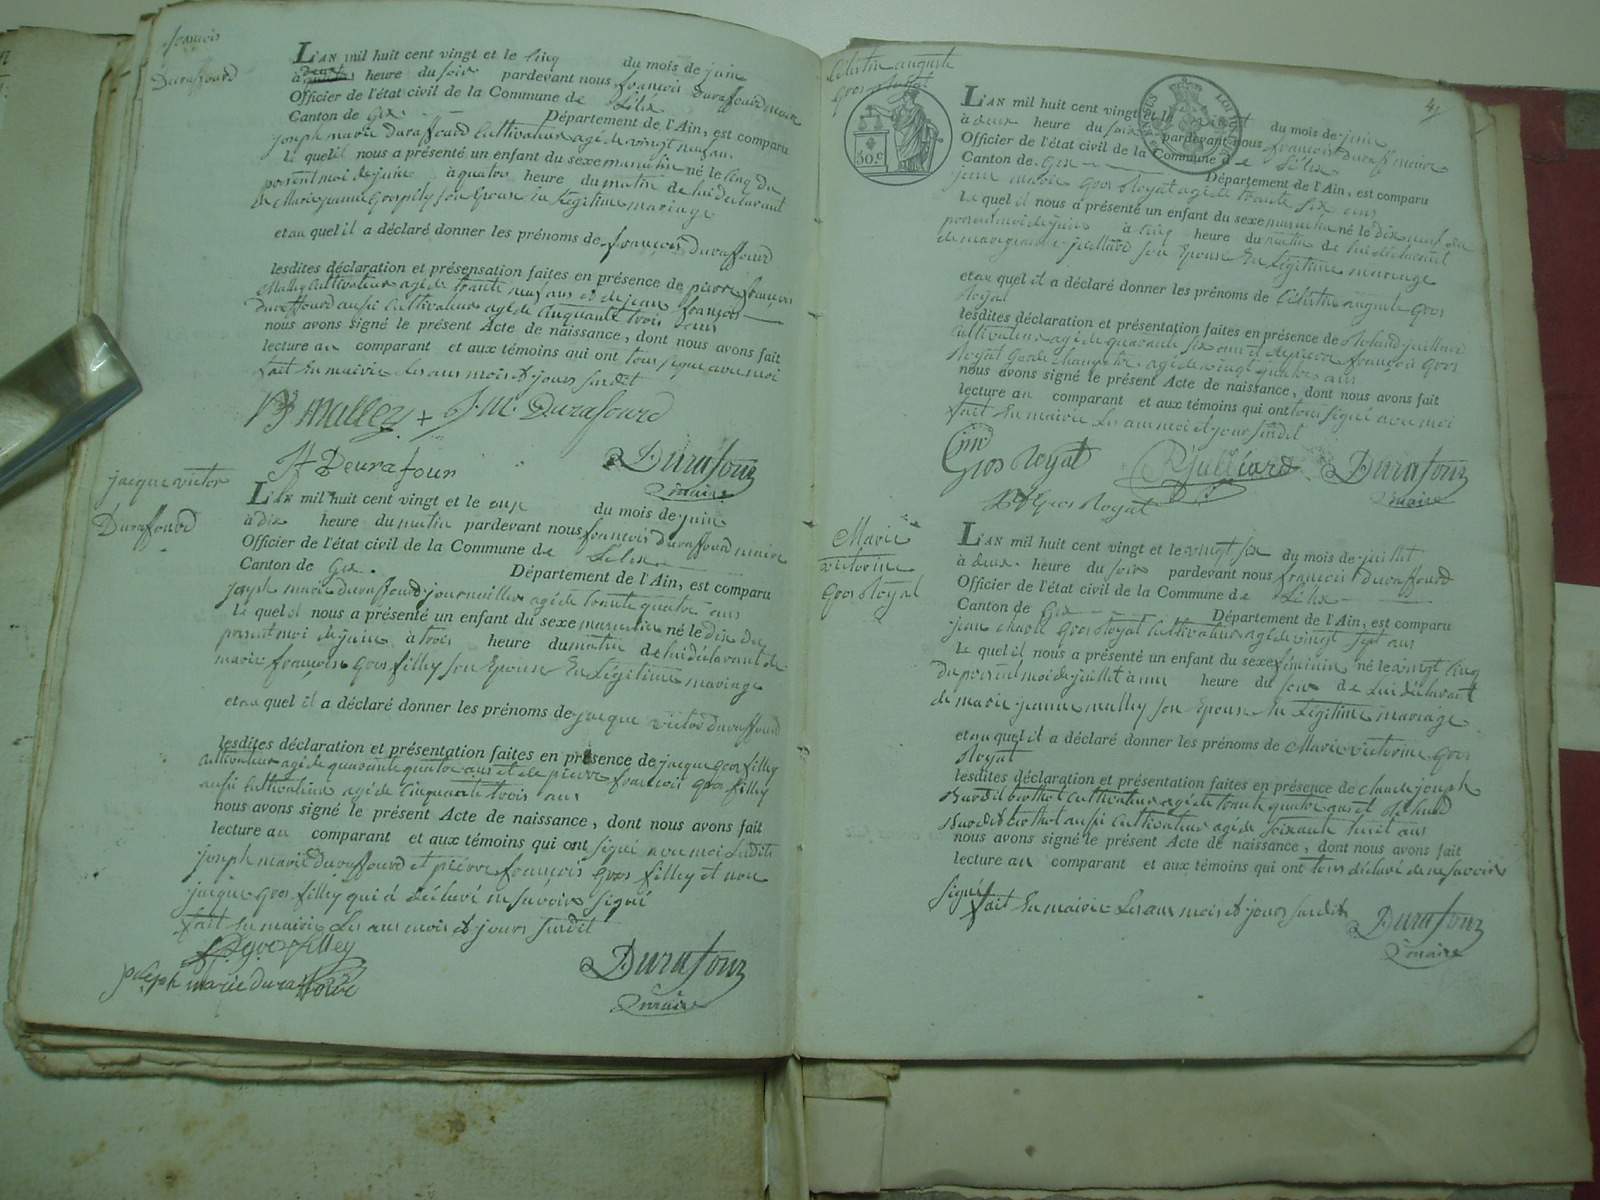 françois
Duraffourd
L'AN mil huit cent vingt et le cinq du mois de juin
à deux heure du soir pardevant nous françois Duraffourd maire
Officier de l'état civil de la Commune de Lélex
Canton de Gex. Département de l'Ain, est comparu
joseph marie duraffourd Cultivateur agé de vingt neuf ans
Le quel il nous a présenté un enfant du sexe masculin né le cinq du
présent moi de juin à quatre heure du matin de lui déclarant
de Marie jeanne son Epouse En Légitime mariage
et au quel il a déclaré donner les prénoms de françois duraffourd
lesdites déclaration et présensation faites en présence de pierre françois
Malley Cultivateur agé de trante neuf ans et de jean françois
Duraffourd aussi Cultivateur agé de Cinquante trois ans
nous avons signé le présent Acte de naissance, dont nous avons fait
lecture au comparant et aux témoins qui ont tous signé avec moi
fait En mairie Les ans mois & jours surdit
Malley J. M. Durafourd
Deurafour Durafour
maire
jacque victor
Duraffourd
L'AN mil huit cent vingt et le onze du mois de juin
à dix heure du matin pardevant nous françois duraffourd maire
Officier de l'état civil de la Commune de Lélex
Canton de Gex. Département de l'Ain, est comparu
joseph marie duraffourd journaillier agé de trante quatre ans
Le quel il nous a présenté un enfant du sexe masculin né le dix du
présent moi de juin à trois heure du matin de lui déclarant de
marie françoise Gros filley son Epouse En Légitime mariage
et au quel il a déclaré donner les prénoms de jacque victor duraffourd
lesdites déclaration et présentation faites en présence de jacque gros filley
Cultivateur agé de quarante quatre ans et de pierre françois gros filley
aussi Cultivateur agé de Cinquante trois ans
nous avons signé le présent Acte de naissance, dont nous avons fait
lecture au comparant et aux témoins qui ont signé avec moi Ledit
joseph marie duraffourd et pierre françois Gros filley et non
jacque Gros filley qui à déclaré ne savoir signé
fait En mairie Les ans mois & jours surdit
gros filley
joseph marie duraffourd Durafour
maire
Célestin auguste
Gros Royat
30.c
4
L'AN mil huit cent vingt et le du mois de juin
à deux heure du soir pardevant nous françois duraff maire
Officier de l'état civil de la Commune de Lélex
Canton de Gex Département de l'Ain, est comparu
jean marie Gros Royat agé de trante six ans
Le quel il nous a présenté un enfant du sexe masculin né le dix neuf du
présent moi de juin à cinq heure du matin de lui déclarant
de marie jeanne juilliard son Epouse En Légitime mariage
et au quel il a déclaré donner les prénoms de Célestin auguste Gros
Royat
lesdites déclaration et présentation faites en présence de Roland juilliard
Cultivateur agé de quarante six ans et de pierre françois Gros
Royat Garde Champêtre agé de vingt quatre ans
nous avons signé le présent Acte de naissance, dont nous avons fait
lecture au comparant et aux témoins qui ont tous signé avec moi
fait En mairie Les ans moi & jour surdit
Gros Royat R Julliard Durafour
Gros Royat maire
Marie
victorine
Gros Royat
L'AN mil huit cent vingt et le vingt six du mois de juillet
à deux heure du soir pardevant nous françois duraffourd
Officier de l'état civil de la Commune de Lélex
Canton de Gex Département de l'Ain, est comparu
jean marie Gros Royat Cultivateur agé de vingt sept ans
Le quel il nous a présenté un enfant du sexe féminin né le vingt cinq
du présent moi de juillet à une heure du soir de Lui déclarant
de marie jeanne malley son Epouse En Légitime mariage
et au quel il a déclaré donner les prénoms de Marie victorine Gros
Royat
lesdites déclaration et présentation faites en présence de claude joseph
Burdet berthet Cultivateur agé de trante quatre ans et
Burdet berthet aussi Cultivateur agé de soixante huit ans
nous avons signé le présent Acte de naissance, dont nous avons fait
lecture au comparant et aux témoins qui ont tous déclaré de ne savoir
signé
fait En mairie Les ans mois & jours surdits
Durafour
maire